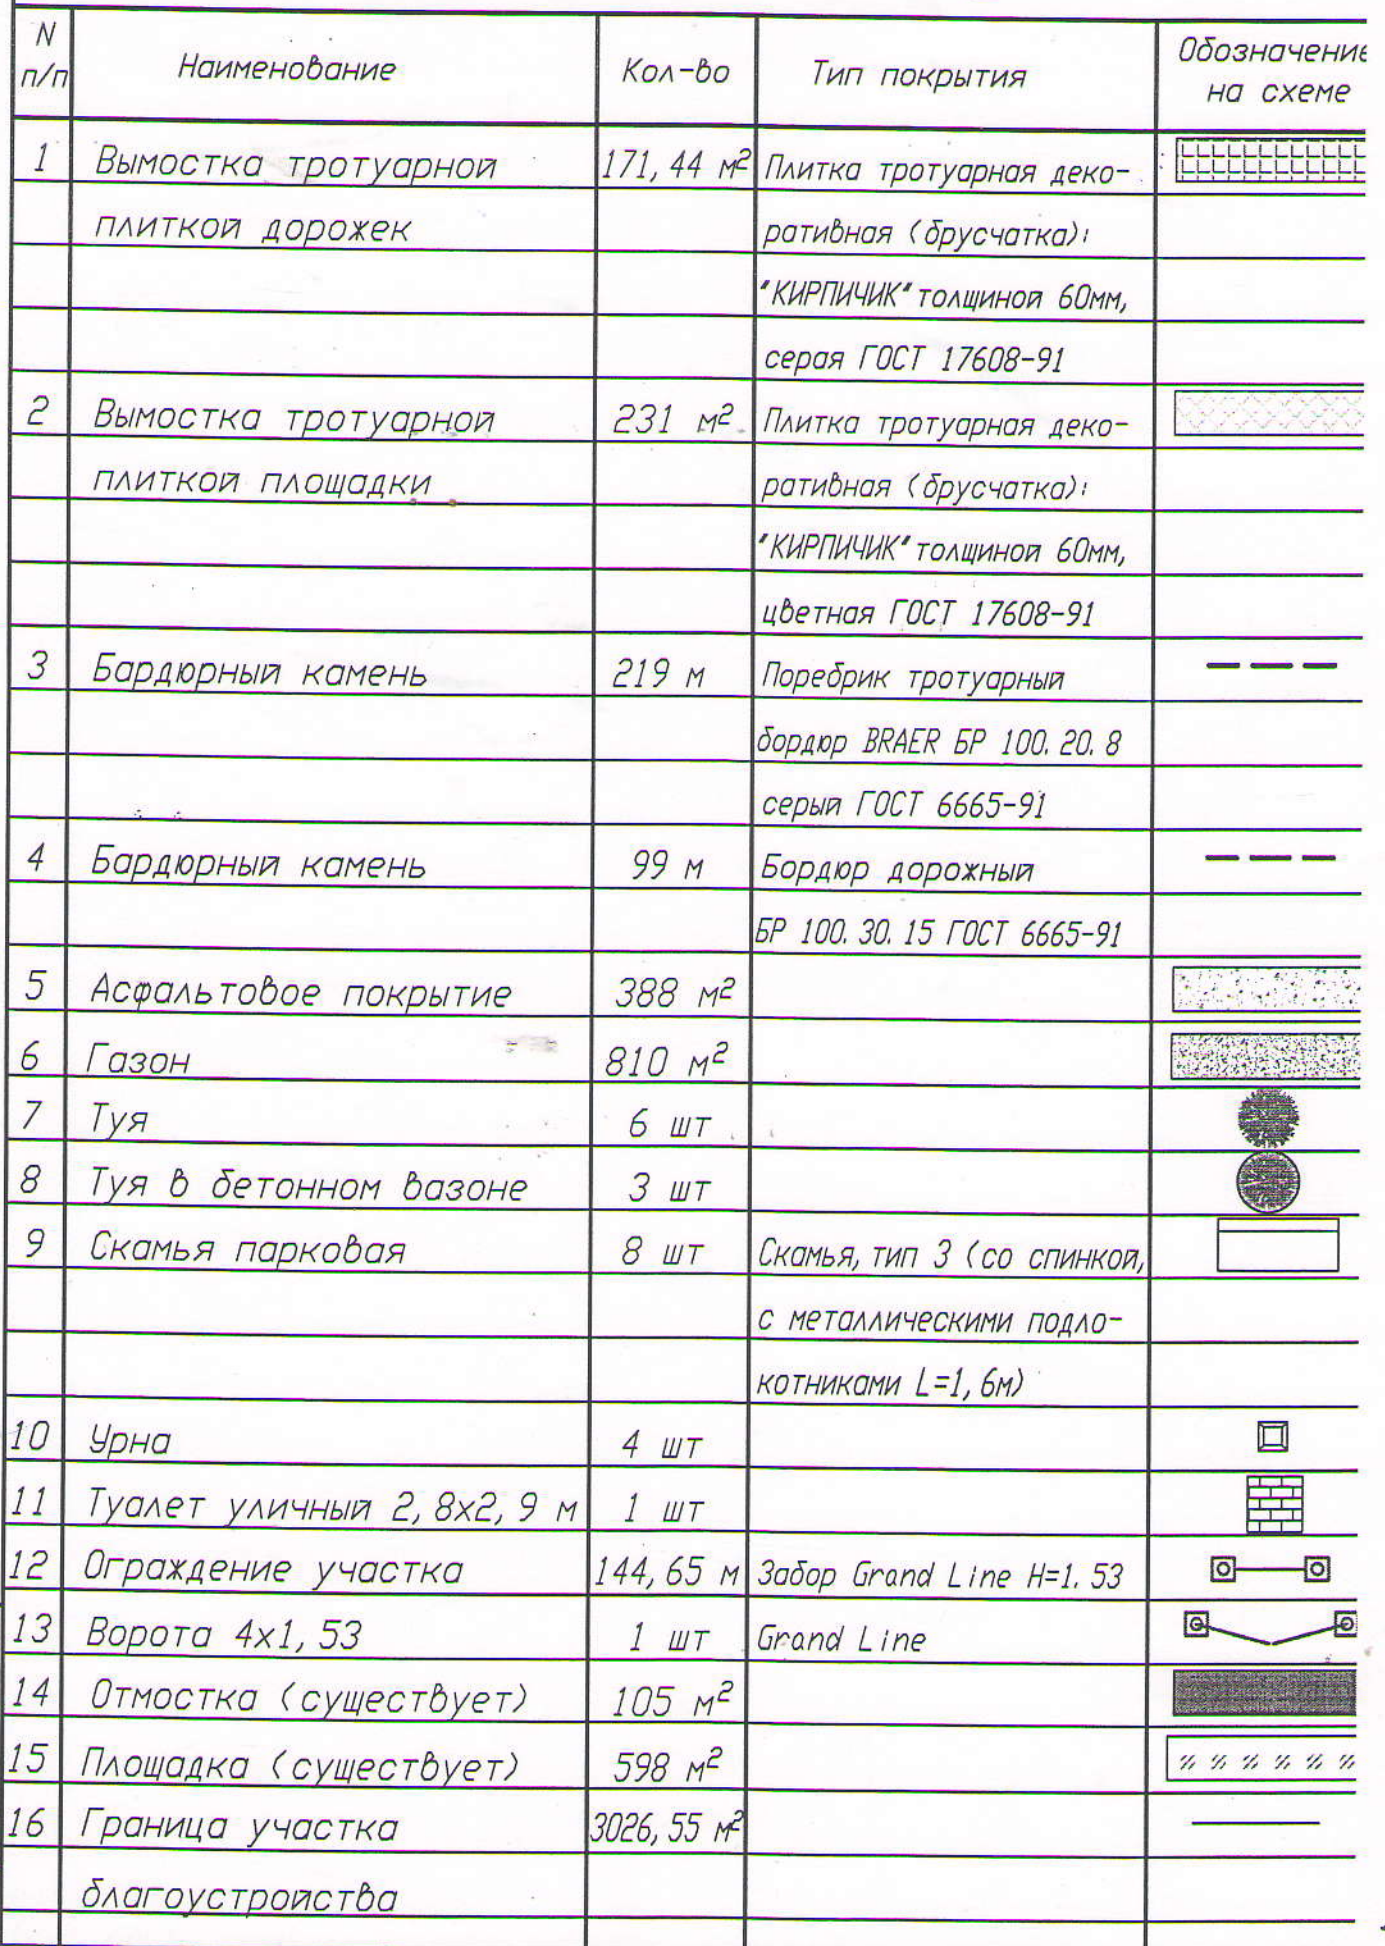 N п/п Наименование Кол-во Тип покрытия Обозначение на схеме
1 Вымостка тротуарной 171,44 м² Плитка тротуарная деко-
плиткой дорожек ративная (брусчатка):
"КИРПИЧИК" толщиной 60мм,
серая ГОСТ 17608-91
2 Вымостка тротуарной 231 м² Плитка тротуарная деко-
плиткой площадки ративная (брусчатка):
"КИРПИЧИК" толщиной 60мм,
цветная ГОСТ 17608-91
3 Бардюрный камень 219 м Поребрик тротуарный
бордюр BRAER БР 100.20.8
серый ГОСТ 6665-91
4 Бардюрный камень 99 м Бордюр дорожный
БР 100.30.15 ГОСТ 6665-91
5 Асфальтовое покрытие 388 м²
6 Газон 810 м²
7 Туя 6 шт
8 Туя в бетонном вазоне 3 шт
9 Скамья парковая 8 шт Скамья, тип 3 (со спинкой,
с металлическими подло-
котниками L=1,6м)
10 Урна 4 шт
11 Туалет уличный 2,8х2,9 м 1 шт
12 Ограждение участка 144,65 м Забор Grand Line H=1.53
13 Ворота 4х1,53 1 шт Grand Line
14 Отмостка (существует) 105 м²
15 Площадка (существует) 598 м²
16 Граница участка 3026,55 м²
благоустройства